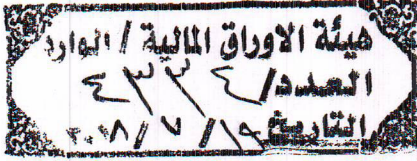 هيئة الاوراق المالية / الوارد
العدد / ٤٣٣٤
التاريخ ١٩ / ٧ / ٢٠١٨